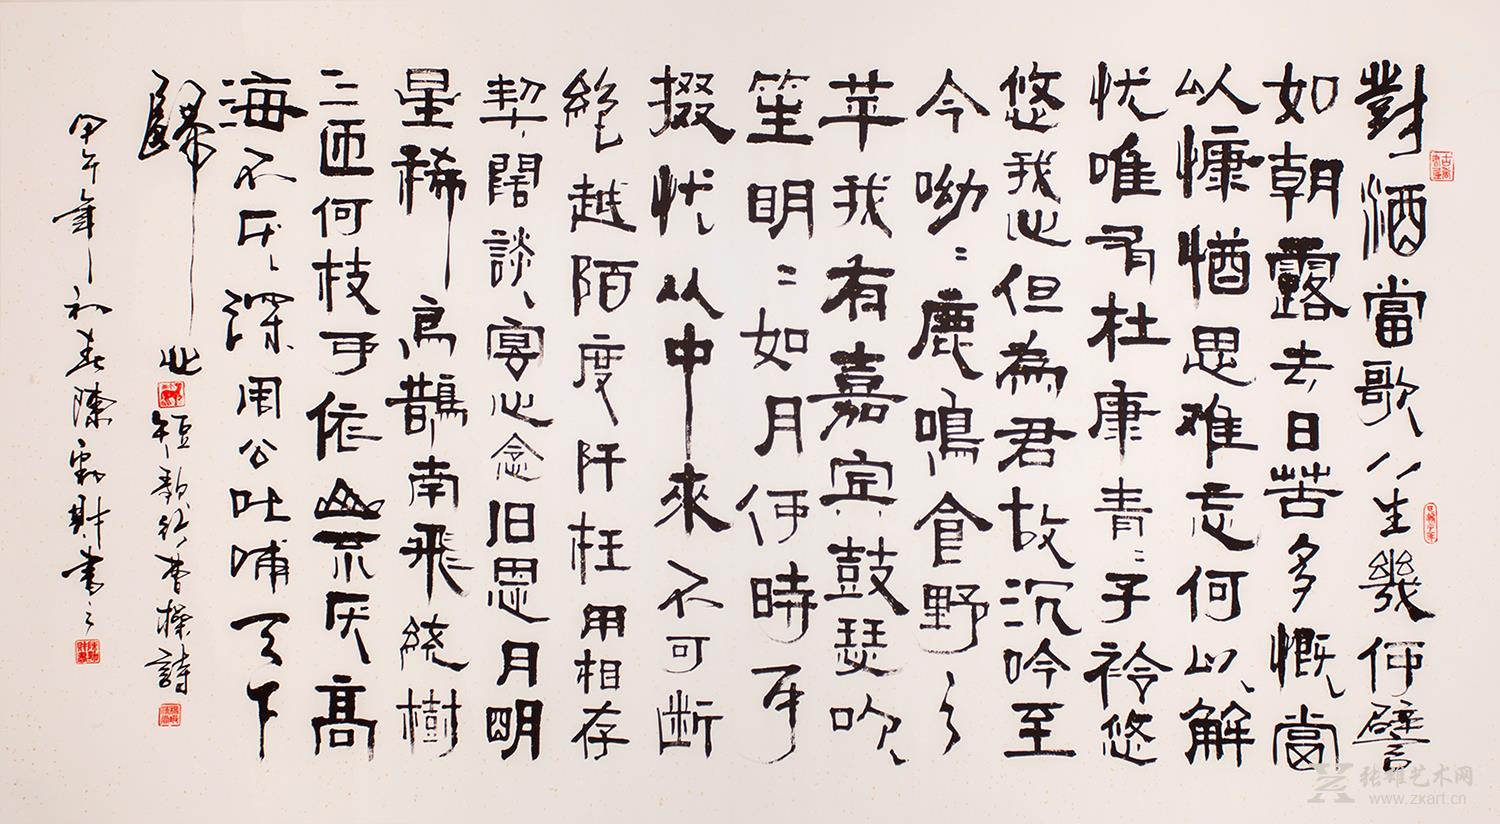 對酒當歌人生幾何譬
如朝露去日苦多慨當
以慷㥢思难忘何以解
忧唯有杜康青〻子衿悠
悠我心但為君故沉吟至
今呦〻鹿鳴食野之
苹我有嘉宾鼓瑟吹
笙明〻如月何時可
掇忧从中來不可断
絕越陌度阡枉用相存
契阔談、宴心念旧恩月明
星稀烏鵲南飛绕樹
三匝何枝可依山不厌高
海不厌、深周公吐哺天下
歸心
短歌行曹操詩
甲午年初春陳財書之
张雄艺术网
www.zkart.cn